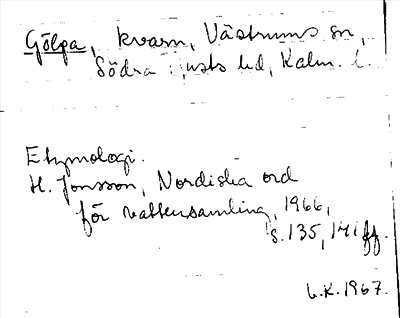 Gölpa, kvarn, Västrums sn,
Södra hd, Kalm. l.
Etymologi.
H. Jonsson, Nordiska ord
för vattensamling, 1966,
s. 135, 141 ff.
L.K. 1967.